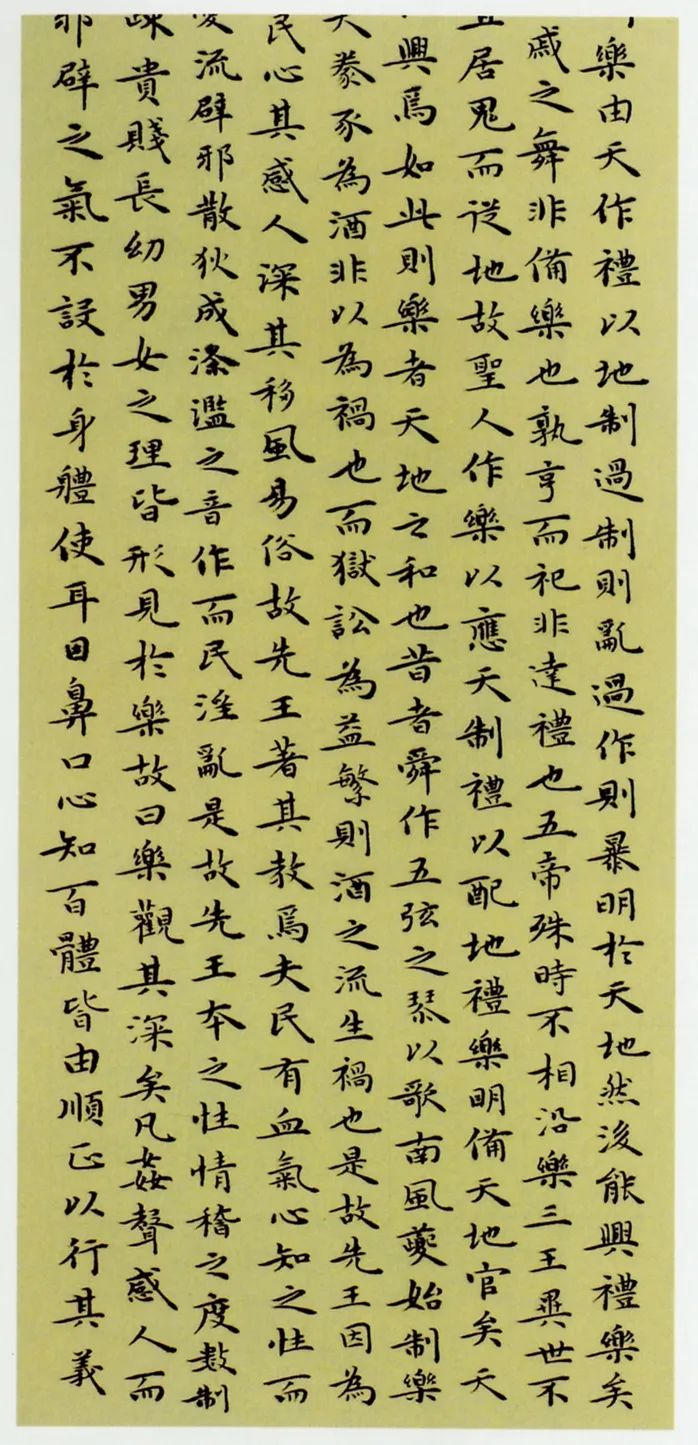 樂由天作禮以地制過制則亂過作則暴明於天地然後能興禮樂矣
戚之舞非備樂也孰亨而祀非達禮也五帝殊時不相沿樂三王異世不
宜居鬼而從地故聖人作樂以應天制禮以配地禮樂明備天地官矣天
興焉如此則樂者天地之和也昔者舜作五弦之琴以歌南風夔始制樂
夫豢豕為酒非以為禍也而獄訟為益繁則酒之流生禍也是故先王因為
民心其感人深其移風易俗故先王著其教焉夫民有血氣心知之性而
流辟邪散狄成滌濫之音作而民淫亂是故先王本之性情稽之度數制
疎貴賤長幼男女之理皆形見於樂故曰樂觀其深矣凡姦聲感人而
邪辟之氣不設於身軆使耳目鼻口心知百體皆由順正以行其義